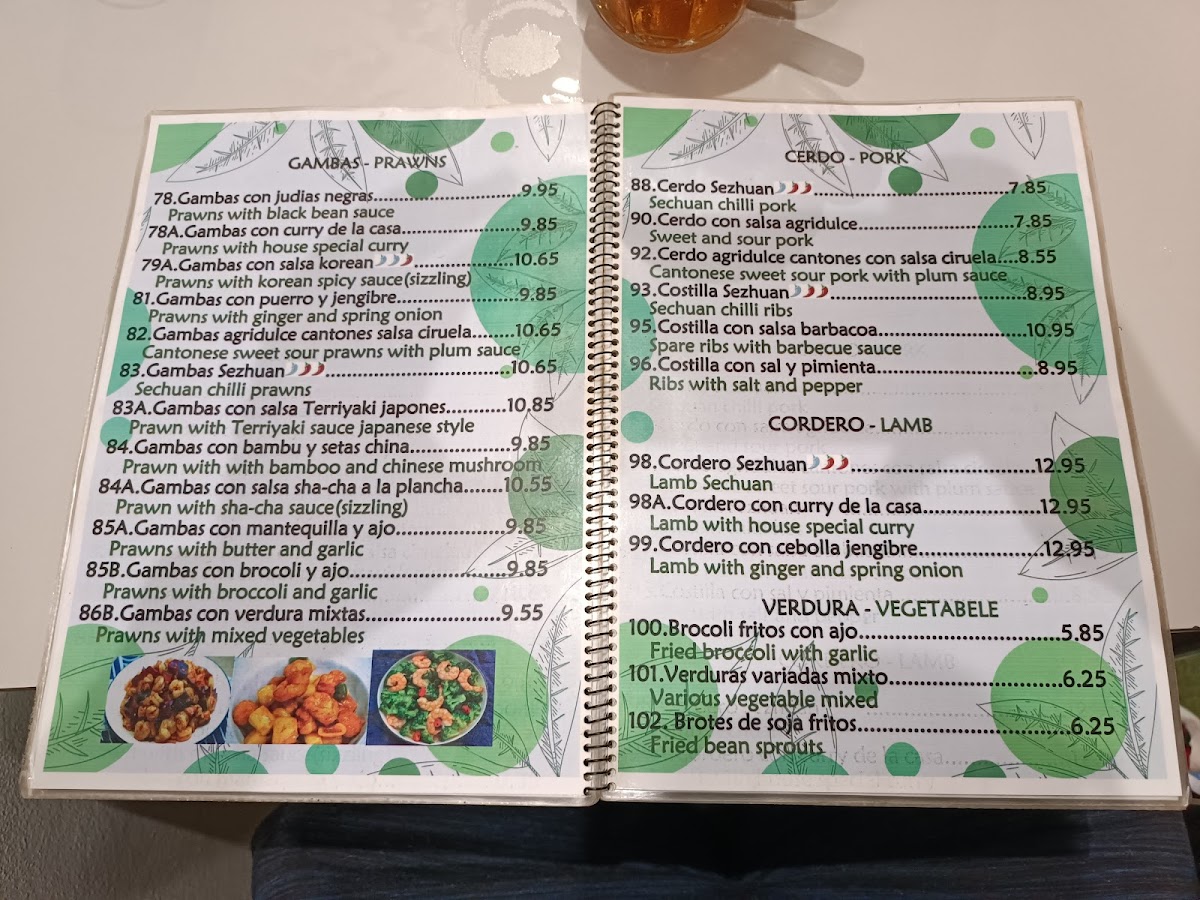 GAMBAS - PRAWNS
78.Gambas con judias negras..............................9.95
Prawns with black bean sauce
78A.Gambas con curry de la casa.........................9.85
Prawns with house special curry
79A.Gambas con salsa korean.........................10.65
Prawns with korean spicy sauce(sizzling)
81.Gambas con puerro y jengibre.........................9.85
Prawns with ginger and spring onion
82.Gambas agridulce cantones salsa ciruela........10.65
Cantonese sweet sour prawns with plum sauce
83.Gambas Sezhuan....................................10.65
Sechuan chilli prawns
83A.Gambas con salsa Terriyaki japones...........10.85
Prawn with Terriyaki sauce japanese style
84.Gambas con bambu y setas china..................9.85
Prawn with with bamboo and chinese mushroom
84A.Gambas con salsa sha-cha a la plancha.......10.55
Prawn with sha-cha sauce(sizzling)
85A.Gambas con mantequilla y ajo....................9.85
Prawns with butter and garlic
85B.Gambas con brocoli y ajo............................9.85
Prawns with broccoli and garlic
86B.Gambas con verdura mixtas.......................9.55
Prawns with mixed vegetables
CERDO - PORK
88.Cerdo Sezhuan........................................7.85
Sechuan chilli pork
90.Cerdo con salsa agridulce...............................7.85
Sweet and sour pork
92.Cerdo agridulce cantones con salsa ciruela....8.55
Cantonese sweet sour pork with plum sauce
93.Costilla Sezhuan........................................8.95
Sechuan chilli ribs
95.Costilla con salsa barbacoa..............................10.95
Spare ribs with barbecue sauce
96.Costilla con sal y pimienta................................8.95
Ribs with salt and pepper
CORDERO - LAMB
98.Cordero Sezhuan.....................................12.95
Lamb Sechuan
98A.Cordero con curry de la casa.......................12.95
Lamb with house special curry
99.Cordero con cebolla jengibre.........................12.95
Lamb with ginger and spring onion
VERDURA - VEGETABELE
100.Brocoli fritos con ajo.....................................5.85
Fried broccoli with garlic
101.Verduras variadas mixto................................6.25
Various vegetable mixed
102. Brotes de soja fritos.......................................6.25
Fried bean sprouts